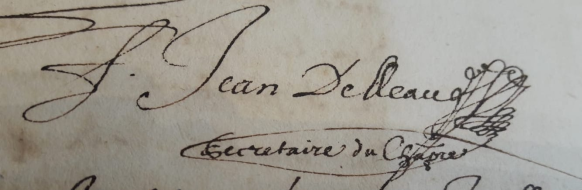 f. Jean Delleaue
Secretaire du Chapre